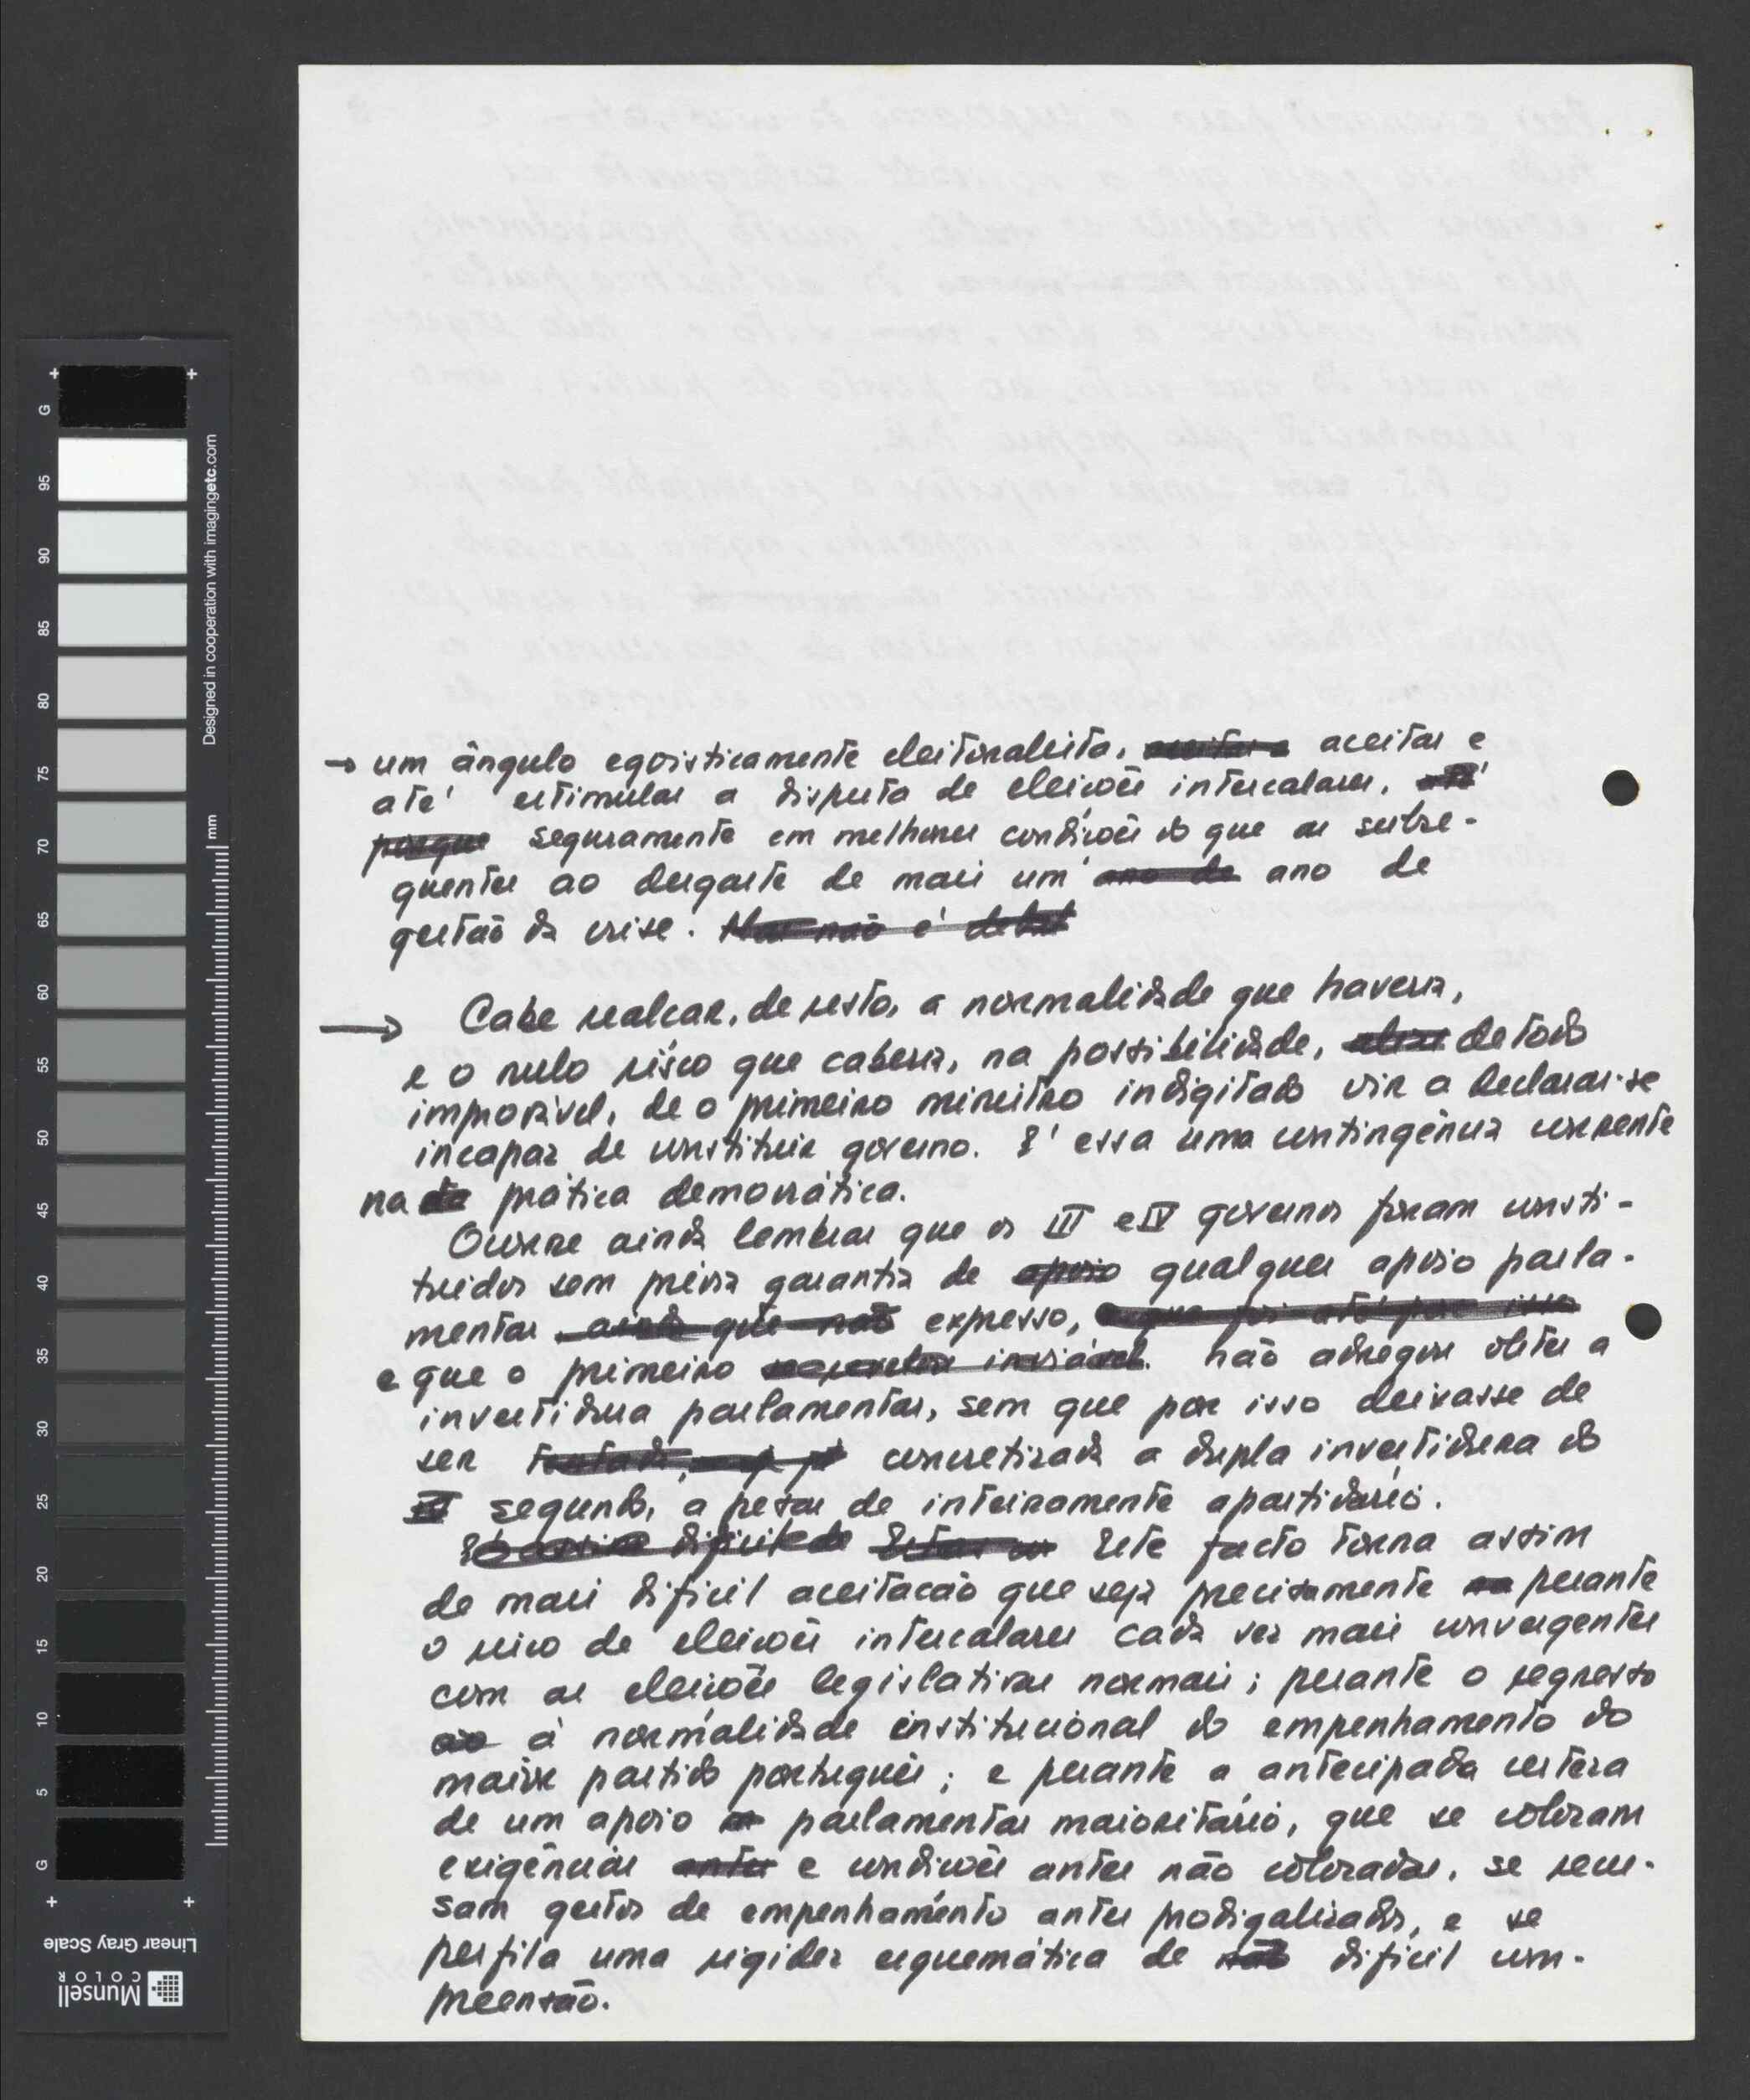 → um ângulo egoisticamente eleitoralista, aceitar e aceitar e
até estimular a disputa de eleições intercalares, até
porque seguramente em melhores condições do que as subse-
quentes ao desgaste de mais um ano de ano de
gestão da crise. Mas não é debat
→ Cabe realçar, de resto, a normalidade que haveria,
e o nulo risco que caberia, na possibilidade, de todo
improvável, de o primeiro ministro indigitado vir a declarar-se
incapaz de constituir governo. E' essa uma contingência corrente
na prática democrática.
Ocorre ainda lembrar que os III e IV governos foram consti-
tuidos sem prévia garantia de apoio qualquer apoio parla-
mentar ainda que não expresso, e que foi até por isso
e que o primeiro inviável. não adregou obter a
investidura parlamentar, sem que por isso deixasse de
ser tentada, concretizada a dupla investidura do
IV segundo, apesar de inteiramente apartidário.
E assim dificil de Este facto torna assim
de mais dificil aceitação que seja precisamente perante
o risco de eleições intercalares cada vez mais convergentes
com as eleições legislativas normais; perante o regresso
ao à normalidade institucional do empenhamento do
maior partido português; e perante a antecipada certeza
de um apoio parlamentar maioritário, que se colocam
exigências antes e condições antes não colocadas, se recu-
sam gestos de empenhamento antes prodigalizados, e se
perfila uma rigidez esquemática de não dificil com-
preensão.
Designed in cooperation with imagingetc.com
mm
G
95
90
85
80
75
70
65
60
55
50
45
40
35
30
25
20
15
10
5
G
Linear Gray Scale
Munsell
COLOR